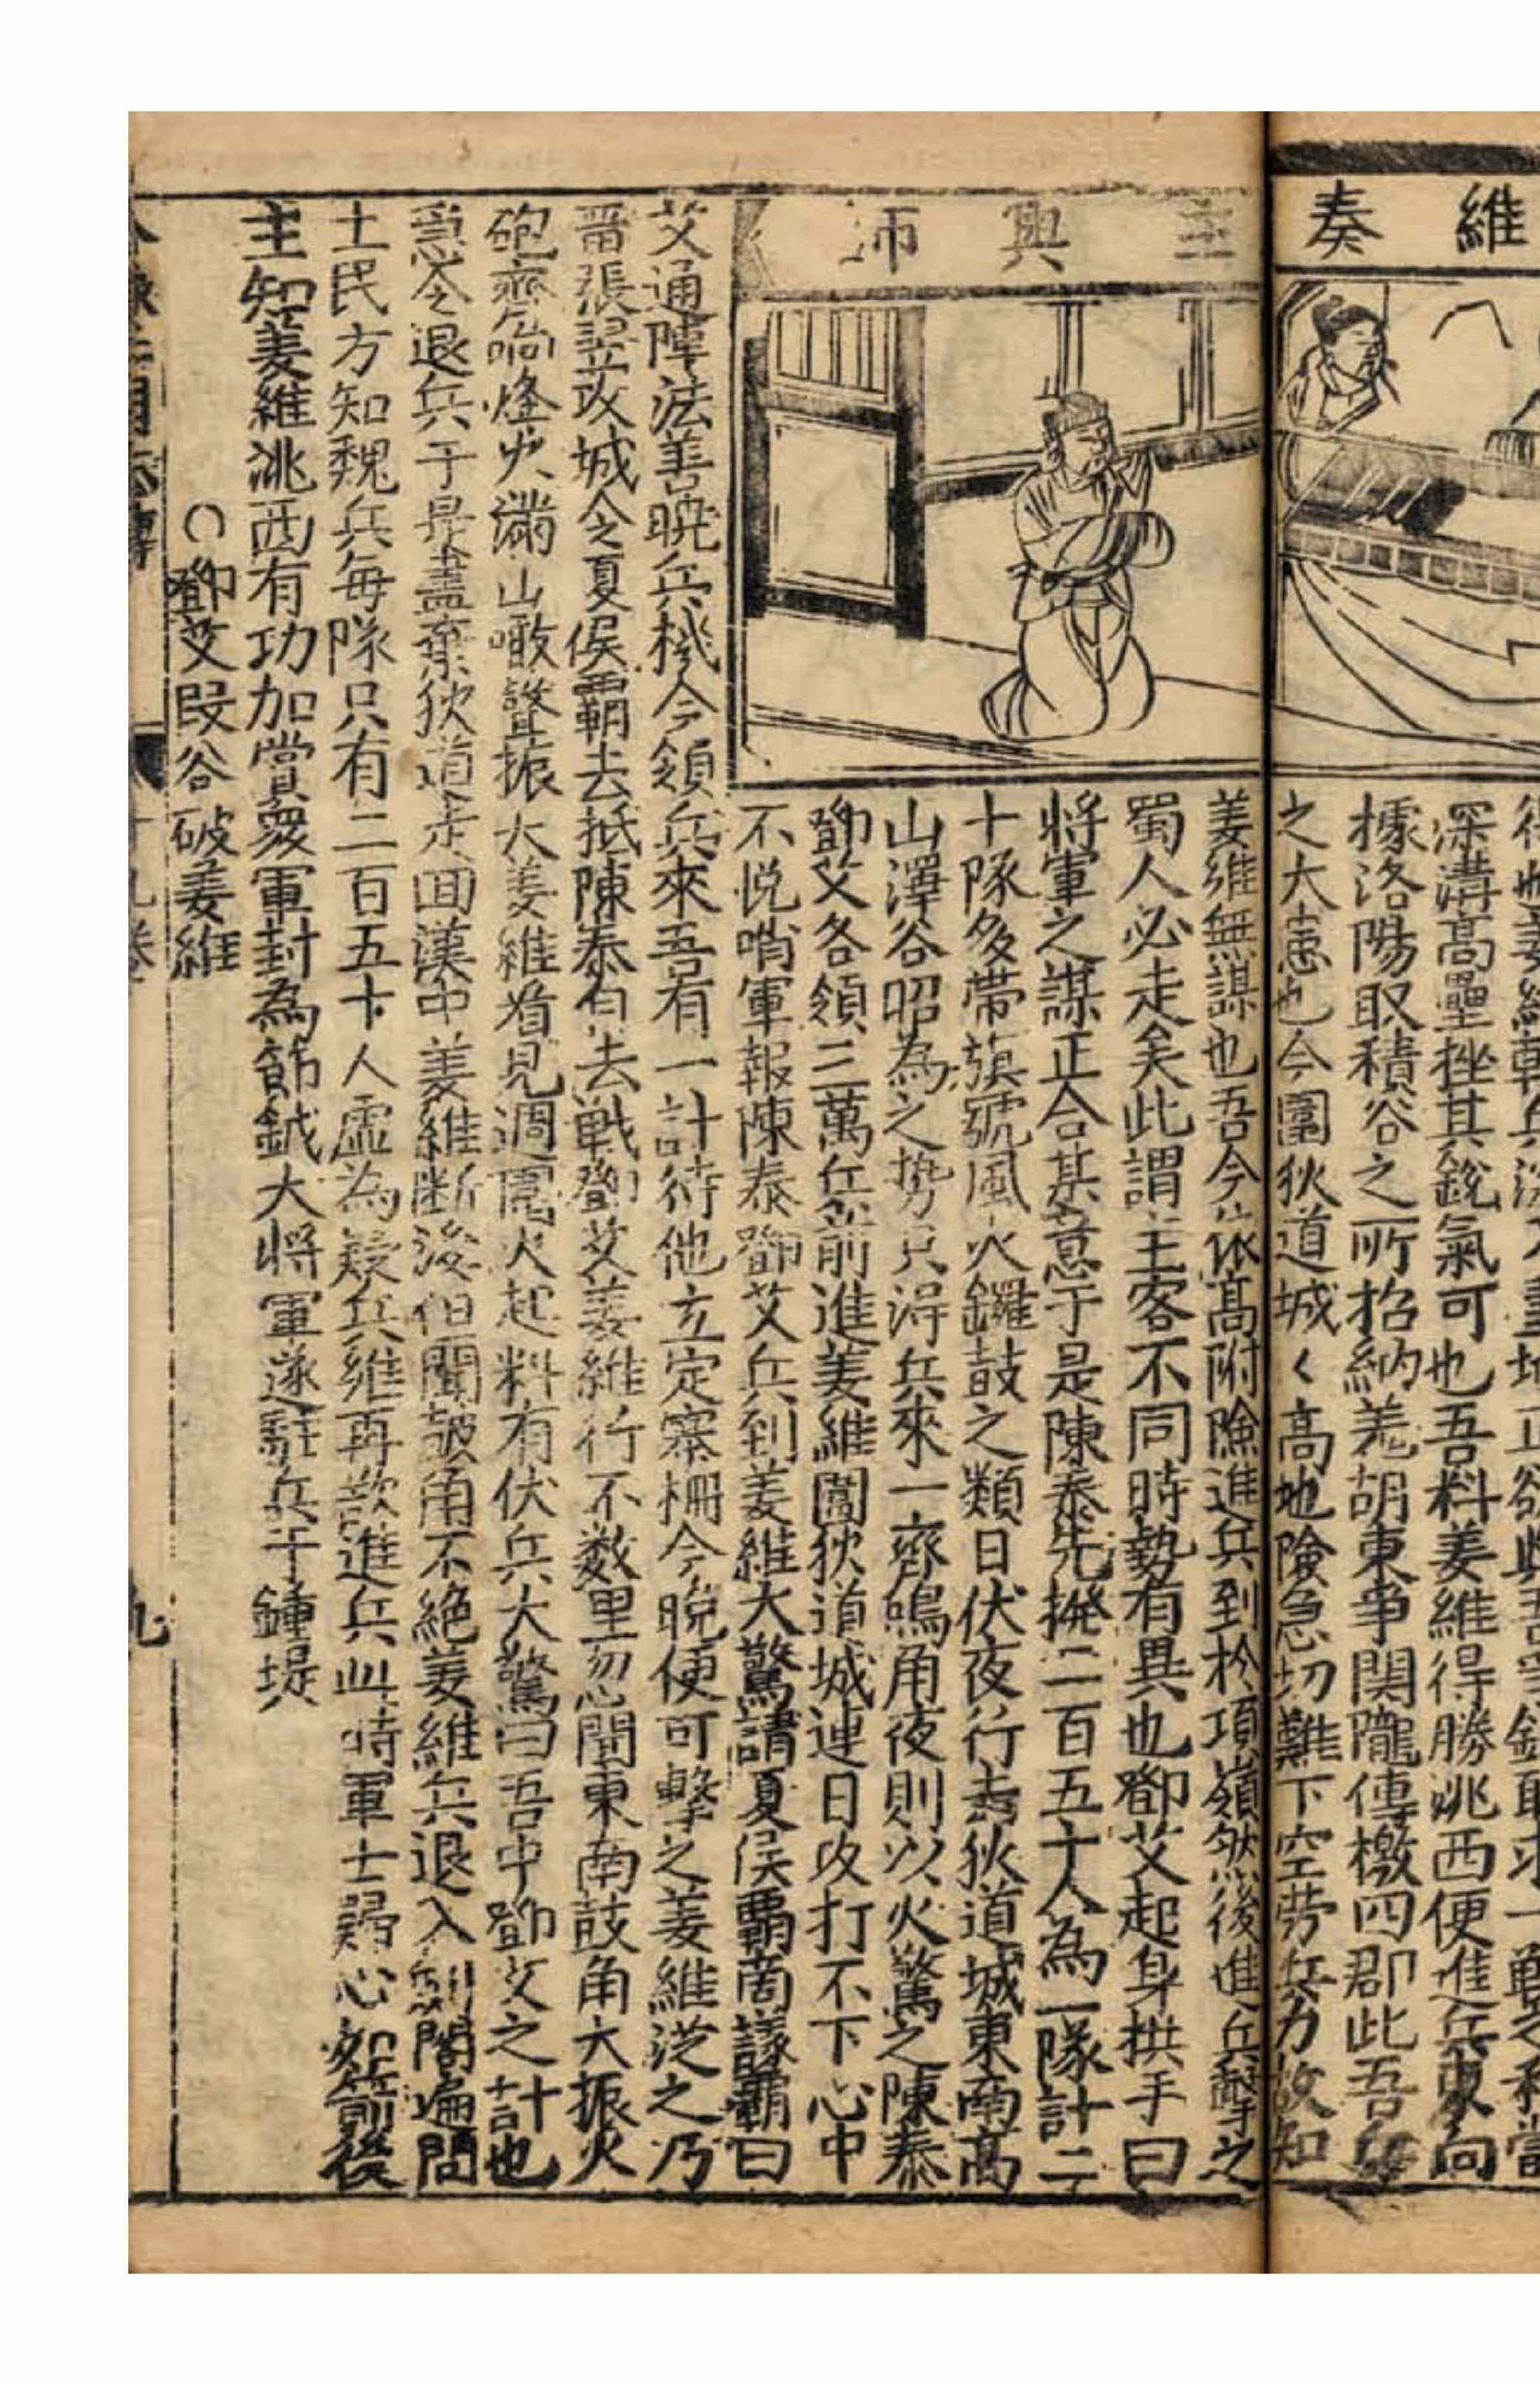 維奏
深溝高壘挫其銳氣可也吾料姜維得勝洮西便進兵東向
據洛陽取積谷之所招納羌胡東爭関隴傳檄四郡此吾
之大患也今圍狄道城〱高地險急切難下空劳兵力故知
興師
姜維無謀也吾今依高附險進兵到於項嶺然後進兵擊之
蜀人必走矣此謂主客不同時勢有異也鄧艾起身拱手曰
將軍之謀正合某意于是陳泰先撥二百五十人為一隊計二
十隊多帶旗號風火鑼鼓之類日伏夜行去狄道城東南高
山澤谷昭為之势只淂兵來一齊鳴角夜則以火驚之陳泰
鄧艾各領三萬兵前進姜維圍狄道城連日攻打不下心中
不悅哨軍報陳泰鄧艾兵到姜維大驚請夏侯覇商議覇曰
艾通陣法善曉兵機今領兵來吾有一計待他立定寨柵今晚便可擊之姜維從之乃
畱張翌攻城令夏侯覇去抵陳泰自去戰鄧艾姜維行不数里忽聞東南鼓角大振火
砲齊响烽火滿山噉聲振大姜維看見週圍火起料有伏兵大驚曰吾中鄧艾之計也
急令退兵于是盡棄狄道走囬漢中姜維断後但聞皷角不絕姜維兵退入劍閣遍問
士民方知魏兵每隊只有二百五十人虛為疑兵維再欲進兵此時軍士歸心如箭後
主知姜維洮西有功加賞衆軍封為節鉞大將軍遂駐兵于鍾堤
○鄧艾叚谷破姜維